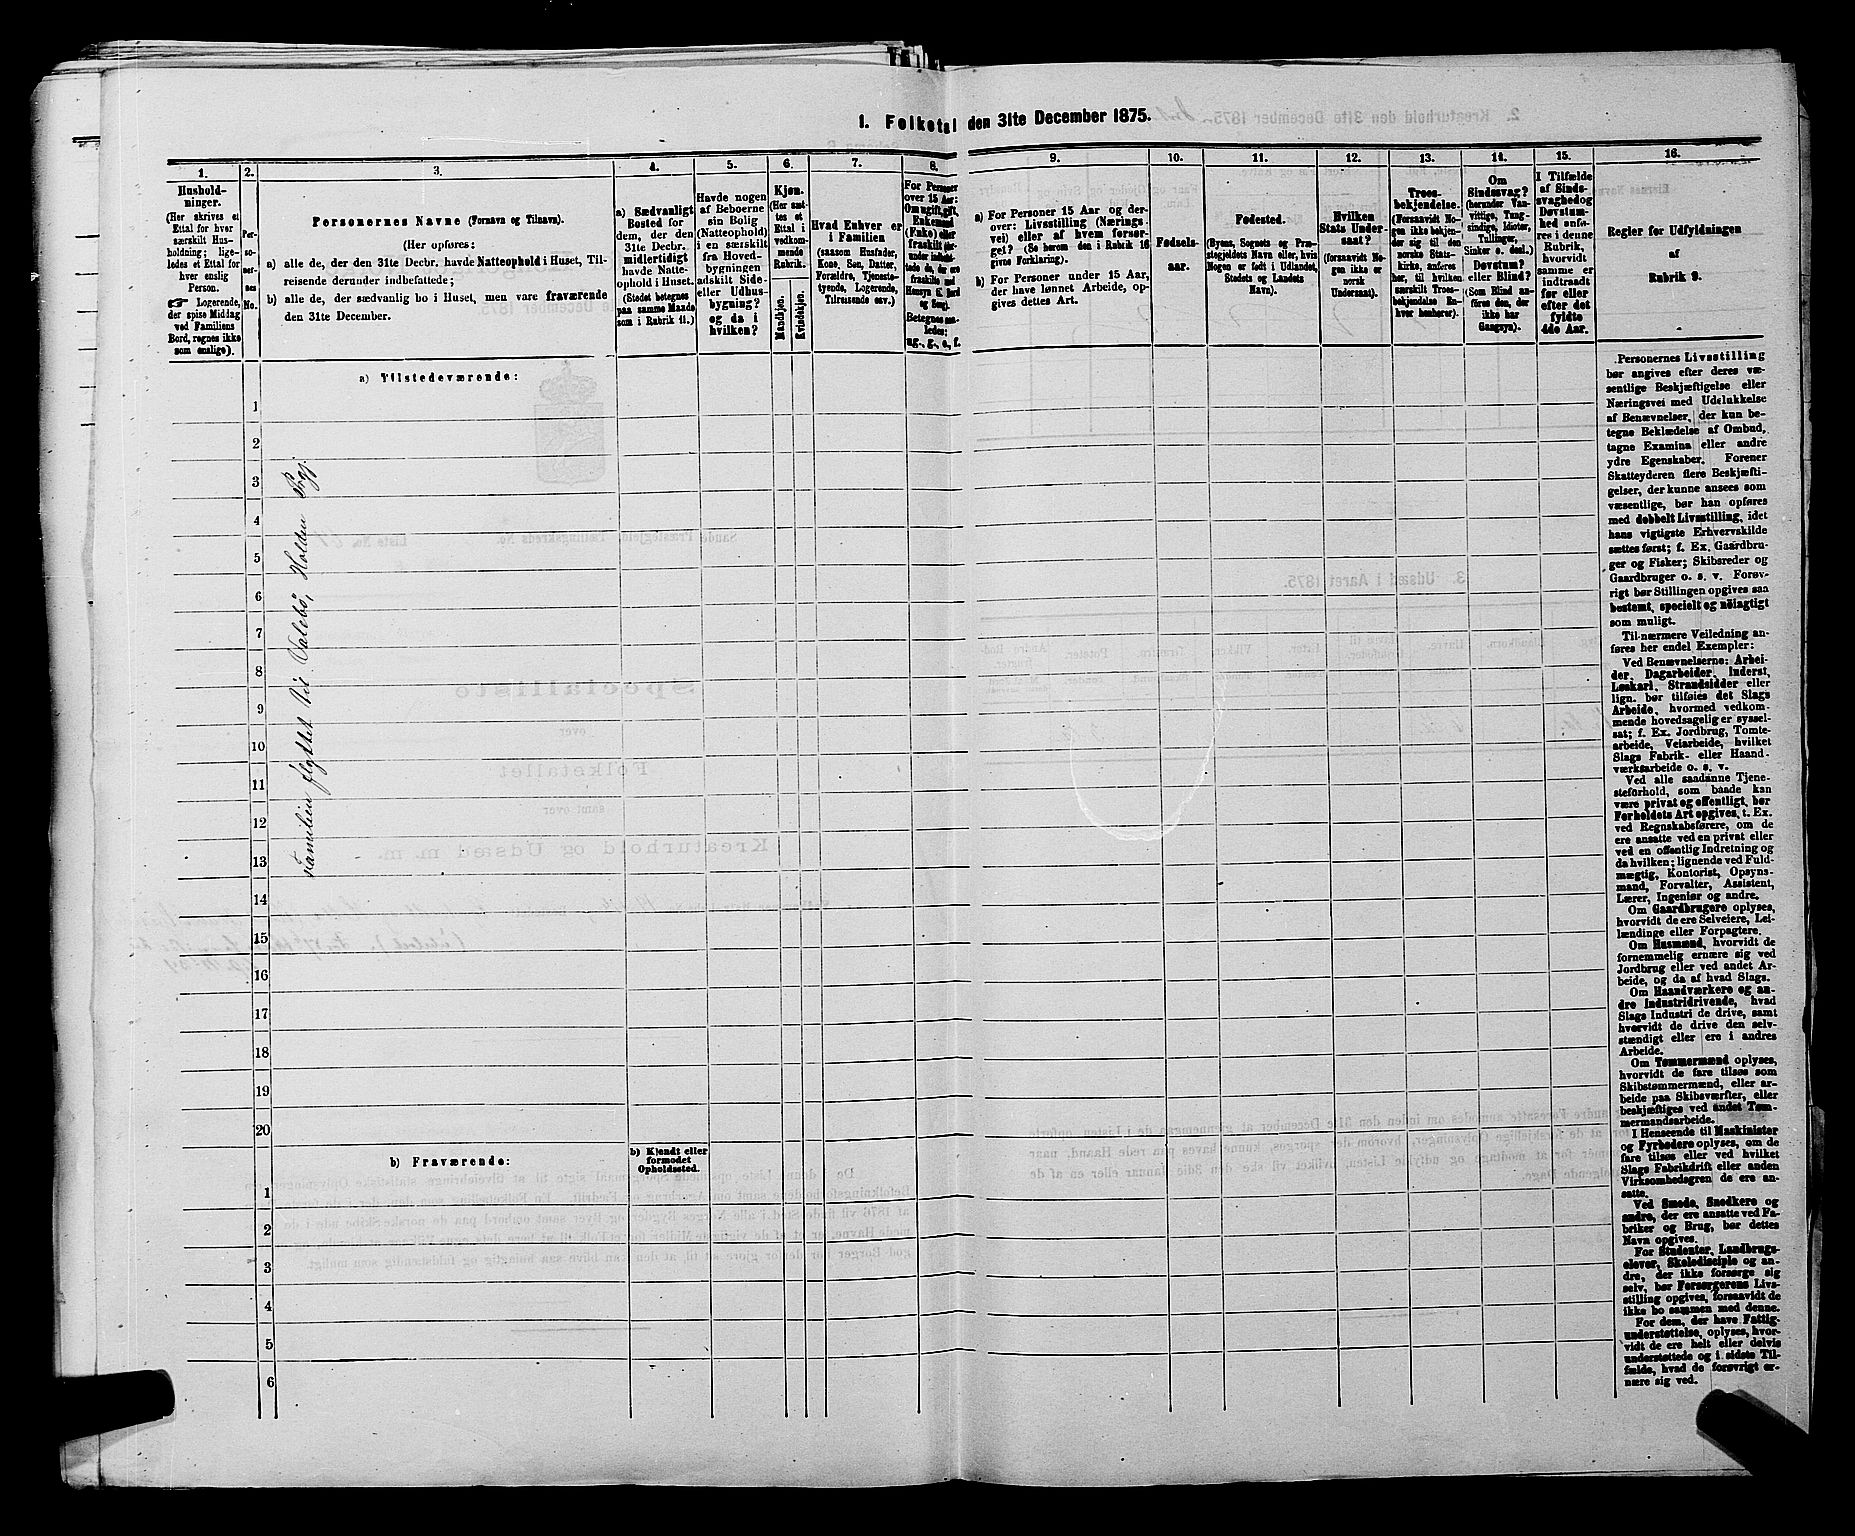 1. Folketal den 31te December 1875.
1.
Hushold-
ninger.
(Her skrives et
Ettal for hver
særskilt Hus-
holdning; lige-
ledes et Ettal for
hver enslig
Person.
☞ Logerende,
der spise Middag
ved Familiens
Bord, regnes ikke
som enslige).
2.
Per-
so-
ner-
nes
No.
3.
Personernes Navne (Fornavn og Tilnavn).
(Her opføres:
a) alle de, der den 31te Decbr. havde Natteophold i Huset, Til-
reisende derunder indbefattede;
b) alle de, der sædvanlig bo i Huset, men vare fraværende
den 31te December.
4.
a) Sædvanligt
Bosted for
dem, der den
31te Decbr.
midlertidigt
havde Natte-
ophold i Huset.
(Stedet betegnes
paa samme Maade
som i Rubrik 11.)
5.
Havde nogen
af Beboerne
sin Bolig
(Natteophold)
i en særskilt
fra Hoved-
bygningen
adskilt Side-
eller Udhus-
bygning?
og da i
hvilken?
6.
Kjøn.
(Her sæt-
tes et
Ettal i
vedkom-
mende
Rubrik.
Mandkjøn.
Kvindekjøn.
7.
Hvad Enhver er
i Familien
(saasom Husfader,
Kone, Søn, Datter,
Forældre, Tjeneste-
tyende, Logerende,
Tilreisende osv.)
8.
For Personer
over 15 Aar:
Om ugift, gift,
Enkemand
(Enke) eller
fraskilt (der-
under indbefat-
tede de, der ere
fraskilte med
Hensyn til Bord
og Seng).
Betegnes saa-
ledes:
ug., g., e., f.
9.
a) For Personer 15 Aar og der-
over: Livsstilling (Nærings-
vei) eller af hvem forsør-
get? (Se herom den i Rubrik 16
givne Forklaring).
b) For Personer under 15 Aar,
der have lønnet Arbeide, op-
gives dettes Art.
10.
Fødsels-
aar.
11.
Fødested.
(Byens, Sognets og Præ-
stegjeldets Navn eller, hvis
Nogen er født i Udlandet,
Stedets og Landets
Navn).
12.
Hvilken
Stats Under-
saat?
(forsaavidt No-
gen ikke er
norsk
Undersaat).
13.
Troes-
bekjendelse.
(Forsaavidt No-
gen ikke bekjen-
der sig til den
norske Stats-
kirke, anføres
her, til hvilken
særskilt Troes-
bekjendelse En-
hver henhører).
14.
Om
Sindssvag?
(herunder Van-
vittige, Tung-
sindige, Idioter,
Tullinger,
Sinker o. desl.)
Døvstum?
eller Blind?
(Som Blind an-
føres den, der
ikke har
Gangsyn).
15.
I Tilfælde
af Sinds-
svaghed og
Døvstum-
hed anfø-
res i denne
Rubrik,
hvorvidt
samme er
indtraadt
før eller
efter det
fyldte
4de Aar.
16.
Regler for Udfyldningen
af
Rubrik 9.
a) Tilstedeværende:
1
2
3
4
5
6
7
8
9
10
11
12
13
14
15
16
17
18
19
20
Familien flyttet til Valebö, Holden Prgj.
b) Fraværende:
b) Kjendt eller
formodet
Opholdssted.
1
2
3
4
5
6
Personernes Livsstilling
bør angives efter deres væ-
sentlige Beskjæftigelse eller
Næringsvei med Udelukkelse
af Benævnelser, der kun be-
tegne Beklædelse af Ombud,
tagne Examina eller andre
ydre Egenskaber. Forener
Skatteyderen flere Beskjæfti-
gelser, der kunne ansees som
væsentlige, bør han opføres
med dobbelt Livsstilling, idet
hans vigtigste Erhvervskilde
sættes først; f. Ex. Gaardbru-
ger og Fisker; Skibsreder og
Gaardbruger o. s. v. Forøv-
rigt bør Stillingen opgives saa
bestemt, specielt og nöiagtigt
som muligt.
Til nærmere Veiledning an-
føres her endel Exempler:
Ved Benævnelserne: Arbei-
der, Dagarbeider, Inderst,
Løskarl, Strandsidder eller
lign. bør tilføies det Slags
Arbeide, hvormed vedkom-
mende hovedsagelig er syssel-
sat; f. Ex. Jordbrug, Tomte-
arbeide, Veiarbeide, hvilket
Slags Fabrik- eller Haand-
værksarbeide o. s. v.
Ved alle saadanne Tjene-
steforhold, som baade kan
være privat og offentligt, bør
Forholdets Art opgives, t. Ex.
ved Regnskabsførere, om de
ere ansatte ved en privat eller
ved en offentlig Indretning og
da hvilken; lignende ved Fuld-
mægtig, Kontorist, Opsyns-
mand, Forvalter, Assistent,
Lærer, Ingeniør og andre.
Om Gaardbrugere oplyses,
hvorvidt de ere Selveiere, Lei-
lændinge eller Forpagtere.
Om Husmænd, hvorvidt de
fornemmelig ernære sig ved
Jordbrug eller ved andet Ar-
beide, og da af hvad Slags.
Om Haandværkere og an-
dre Industridrivende, hvad
Slags Industri de drive, samt
hvorvidt de drive den selv-
stændigt eller ere i andres
Arbeide.
Om Tømmermænd oplyses,
hvorvidt de fare tilsøs som
Skibstømmermænd, eller ar-
beide paa Skibsværfter, eller
beskjæftiges ved andet Tøm-
mermandsarbeide.
I Henseende til Maskinister
og Fyrbødere oplyses, om de
fare tilsøs eller ved hvilket
Slags Fabrikdrift eller anden
Virksomhedsgren de ere an-
satte.
Ved Smede, Snedkere og
andre, der ere ansatte ved Fa-
briker og Brug, bør dettes
Navn opgives.
For Studenter, Landbrugs-
elever, Skoledisciple og an-
dre, der ikke forsørge sig
selv, bør Forsørgerens Livs-
stilling opgives, forsaavidt de
ikke bo sammen med denne.
For dem, der have Fattig-
understøttelse, oplyses, hvor-
vidt de ere helt eller delvis
understøttede og i sidste Til-
fælde, hvad de forøvrigt er-
nære sig ved.